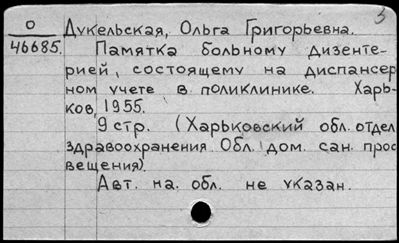 3
О Дукельская, Ольга Григорьевна.
46685. Памятка больному дизенте-
рией, состоящему на диспансер
ном учете в поликлинике. Харь-
ков, 1955.
9 стр. (Харьковский обл. отдел
здравоохранения Обл. дом. сан. прос
вещения).
Авт. на. обл. не указан.